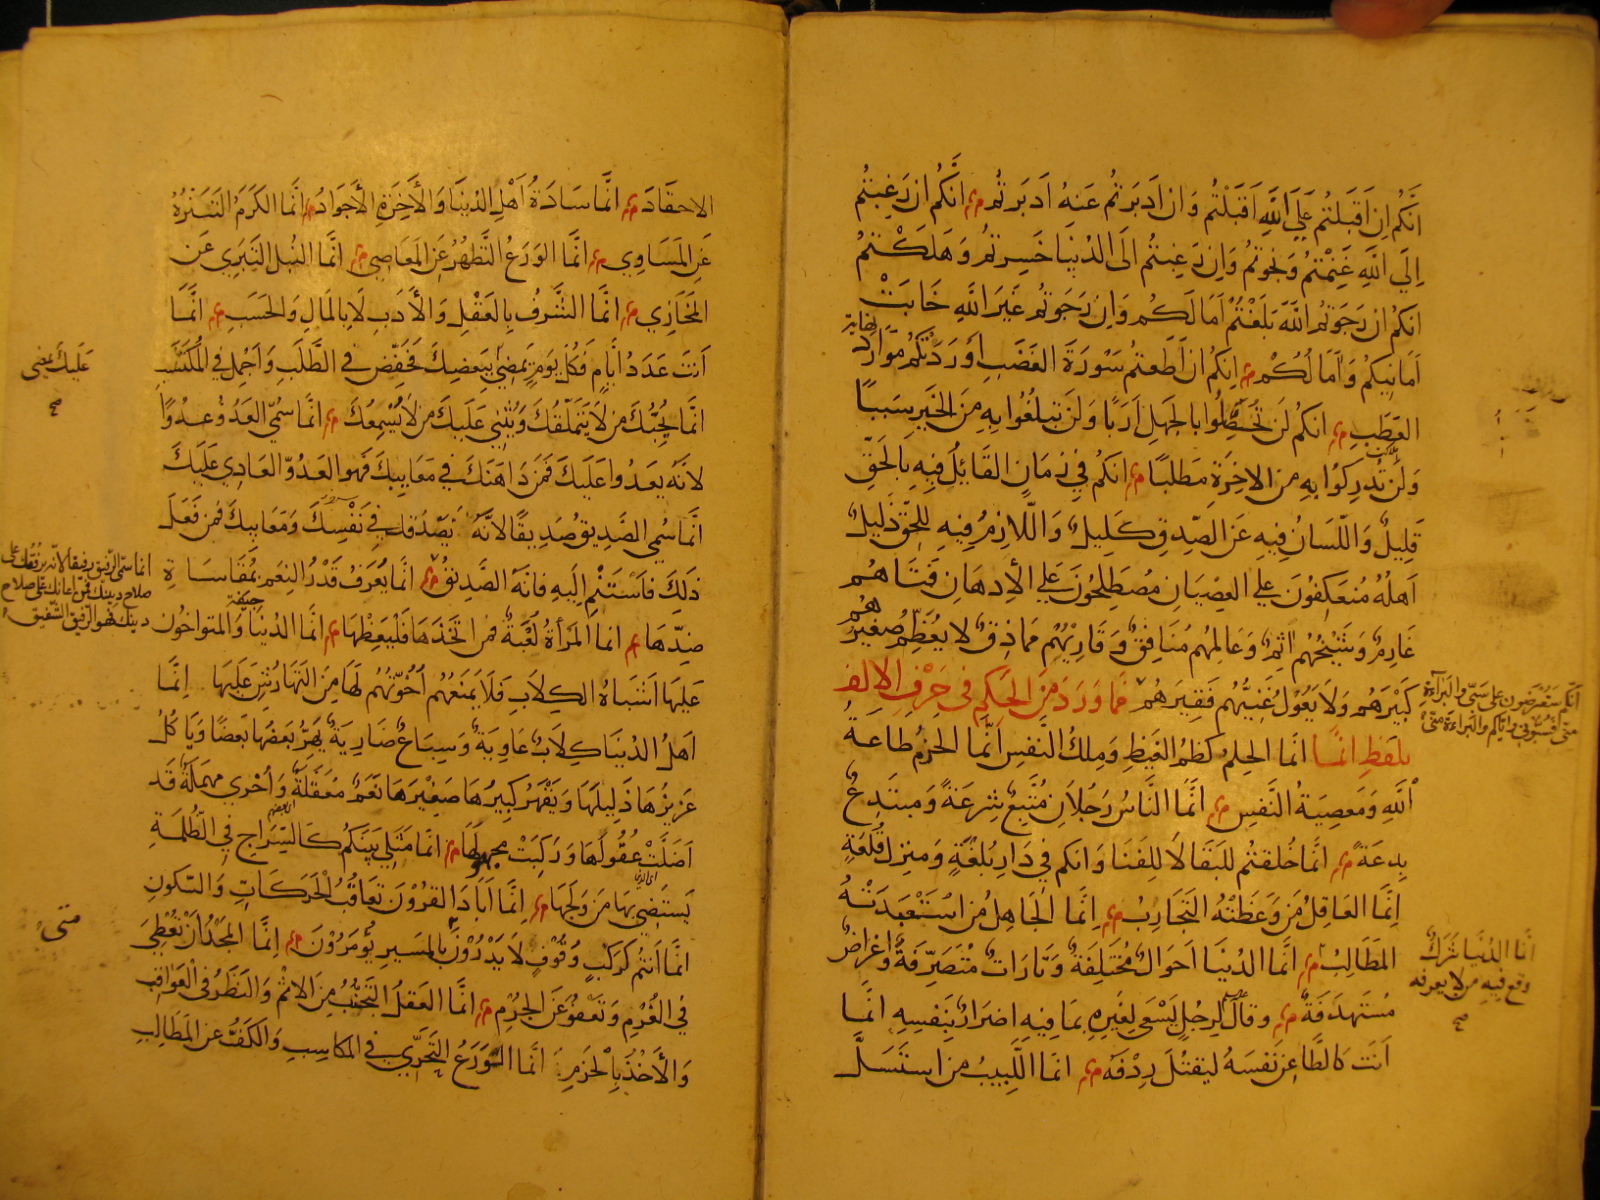 اِنَّكُمْ اِنْ اَقْبَلْتُمْ عَلَى اللهِ اَقْبَلْتُمْ وَاِنْ اَدْبَرْتُمْ عَنْهُ اَدْبَرْتُمْ اِنَّكُمْ اِنْ رَغِبْتُمْ
اِلَى اللهِ غَنِمْتُمْ وَنَجَوْتُمْ وَاِنْ رَغِبْتُمْ اِلَى الدُّنْيَا خَسِرْتُمْ وَهَلَكْتُمْ
اِنَّكُمْ اِنْ رَجَوْتُمُ اللهَ بَلَغْتُمْ اٰمَالَكُمْ وَاِنْ رَجَوْتُمْ غَيْرَ اللهِ خَابَتْ
اَمَانِيكُمْ وَاٰمَالُكُمْ اِنَّكُمْ اِنْ اَطَعْتُمْ سَوْرَةَ الْغَضَبِ اَوْرَدَتْكُمْ مَوَارِدَ
العَطَبِ اِنَّكُمْ لَنْ تُحَصِّلُوا بِالجَهْلِ اَرَبًا وَلَنْ تَبْلُغُوا بِهِ مِنَ الْخَيْرِ سَبَبًا
وَلَنْ تُدْرِكُوا بِهِ مِنَ الاٰخِرَةِ مَطْلَبًا اِنَّكُمْ فِي زَمَانٍ القَائِلُ فِيهِ بِالْحَقِّ
قَلِيلٌ وَاللِّسَانُ فِيهِ عَنِ الصِّدْقِ كَلِيلٌ وَاللَّازِمُ فِيهِ لِلحَقِّ ذَلِيلٌ
اَهْلُهُ مُنْعَكِفُونَ عَلَى العِصْيَانِ مُصْطَلِحُونَ عَلَى الْاِدْهَانِ فَتَاهُمْ
عَارِمٌ وَشَيْخُهُمْ اٰثِمٌ وَعَالِمُهُمْ مُنَافِقٌ وَقَارِيْهِمْ مَمَاذِقٌ لَا يُعَظِّمُ صَغِيْرُهُمْ
كَبِيْرَهُمْ وَلَا يَعُوْلُ غَنِيُّهُمْ فَقِيرَهُمْ مِمَّا وَرَدَ مِنَ الْحِكَمِ فِي حَرْفِ الْاَلِفِ
بِلَفْظِ اِنَّمَا اِنَّمَا الحِلْمُ كَظْمُ الْغَيْظِ وَمِلْكُ النَّفْسِ اِنَّمَا الْحَزْمُ طَاعَةُ
اللهِ وَمَعْصِيَةُ النَّفْسِ اِنَّمَا النَّاسُ رَجُلَانِ مُتَّبِعُ شِرْعَةً وَمُبْتَدِعُ
بِدْعَةً اِنَّمَا خُلِقْتُمْ لِلبَقَا لَا لِلفَنَا وَانكم فِي دَارِ بُلْغَةٍ وَمَنْزِلِ قُلْعَةٍ
اِنَّمَا العَاقِلُ مَنْ وَعَظَتْهُ التَّجَارِبُ اِنَّمَا الْجَاهِلُ مَنِ اسْتَعْبَدَتْهُ
المَطَالِبُ اِنَّمَا الدُّنْيَا اَحْوَالٌ مُخْتَلِفَةٌ وَتَارَاتٌ مُتَصَرِّفَةٌ وَاَغْرَاضٌ
مُسْتَهْدَفَةٌ وقالَ لِرَجُلٍ يَسْعَى لِغَيْرِهِ بِمَا فِيهِ اِضْرَارٌ بِنَفْسِهِ اِنَّمَا
اَنْتَ كَالطَّاعِنِ نَفْسَهُ لِيَقْتُلَ رِدْفَهُ اِنَّمَا اللَّبِيبُ مَنِ اسْتَسَلَّ
انما الدُّنْيَا شَرَكٌ
وقع فيه من لا يعرفه
الاحْقَادَ اِنَّمَا سَادَةُ اَهْلِ الدُّنْيَا وَالْاٰخِرَةِ الْاَجْوَادُ اِنَّمَا الكَرَمُ التَّنَزُّهُ
عَنِ المَسَاوِي اِنَّمَا الوَرَعُ التَّطَهُّرُ عَنِ المَعَاصِي اِنَّمَا النُّبْلُ التَّبَرِّي عَنِ
المَخَازِي اِنَّمَا الشَّرَفُ بِالعَقْلِ وَالْاَدَبِ لَا بِالمَالِ وَالحَسَبِ اِنَّمَا
اَنْتَ عَدَدُ اَيَّامٍ فَكُلُّ يَوْمٍ يَمْضِي بِبَعْضِكَ فَخَفِّضْ فِي الطَّلَبِ وَاَجْمِلْ فِي المُكْتَسَبِ
اِنَّمَا يُحِبُّكَ مَنْ لَا يَتَمَلَّقُكَ وَيُثْنِي عَلَيْكَ مَنْ لَا يُسْمِعُكَ اِنَّمَا سُمِّيَ العَدُوُّ عَدُوًّا
لِاَنَّهُ يَعْدُوا عَلَيْكَ فَمَنْ دَاهَنَكَ فِي مَعَايِبِكَ فَهُوَ العَدُوُّ العَادِي عَلَيْكَ
اِنَّمَا سُمِّيَ الصَّدِيقُ صَدِيقًا لِاَنَّهُ يَصْدُقُكَ فِي نَفْسِكَ وَمَعَايِبِكَ فَمَنْ فَعَلَ
ذَلِكَ فَاسْتَنِمْ اِلَيْهِ فَانَّهُ الصَّدِيقُ اِنَّمَا يُعْرَفُ قَدْرُ النِّعَمِ بِمُقَاسَاةِ
ضِدِّهَا اِنَّمَا المَرْأَةُ لُعْبَةٌ فَمَنِ اتَّخَذَهَا فَلْيُغَطِّهَا اِنَّمَا الدُّنْيَا جِيفَةٌ وَالمُتَوَاخُونَ
عَلَيْهَا اَشْبَاهُ الكِلَابِ فَلَا يَمْنَعُهُمْ اُخُوَّتُهُمْ لَهَا مِنَ التَّهَارُشِ عَلَيْهَا اِنَّمَا
اَهْلُ الدُّنْيَا كِلَابٌ عَاوِيَةٌ وَسِبَاعٌ ضَارِيَةٌ يَهِرُّ بَعْضُهَا بَعْضًا وَيَاكُلُ
عَزِيزُهَا ذَلِيلَهَا وَيَقْهَرُ كَبِيرُهَا صَغِيْرَهَا نَعَمٌ مُعَقَّلَةٌ وَاُخْرَى مُهْمَلَةٌ قَدْ
اَضَلَّتْ عُقُولَهَا وَرَكِبَتْ مَجْهُولَهَا اِنَّمَا مَثَلِي بَيْنَكُمْ كَالسِّرَاجِ فِي الظُّلْمَةِ
يَسْتَضِيْ بِهَا مَنْ وَلَجَهَا اِنَّمَا اَبَادَ القُرُوْنَ تَعَاقُبُ الْحَرَكَاتِ وَالسُّكُونِ
اِنَّمَا اَنْتُمْ كَرَكْبٍ وُقُوْفٍ لَا يَدْرُوْنَ مَتَى بِالمَسِيرِ يُؤْمَرُوْنَ اِنَّمَا الْمَجْدُ اَنْ تُعْطِيَ
فِي الْغُرْمِ وَتَعْفُوَ عَنِ الْجُرْمِ اِنَّمَا العَقْلُ التَّجَنُّبُ مِنَ الْاِثْمِ وَالنَّظَرُ فِي الْعَوَاقِبِ
وَالْاَخْذُ بِالْحَزْمِ اِنَّمَا الْوَرَعُ التَّحَرِّي فِي المَكَاسِبِ وَالكَفُّ عَنِ المَطَالِبِ
عَلَيْكَ يمضى
انما سمّى الرّفيق رفيقًا لانّه يرفقك على
صلاح دينك فمن اعانك على صلاح
دينك فهو الرّفيق الشّفيق
متى